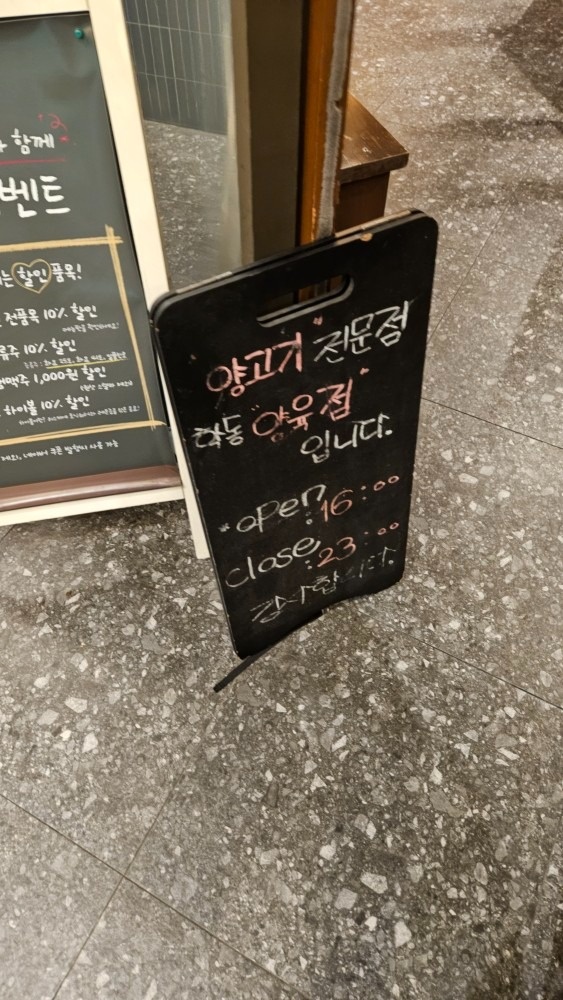 함께
벤트
는 할인 품목!
전품목 10% 할인
류주 10% 할인
맥주 1,000원 할인
하이볼 10% 할인
네이버 쿠폰 발행시 사용 가능
"양고기" 전문점
학동 "양육점"
입니다.
open : 16:00
close : 23:00
감사합니다.